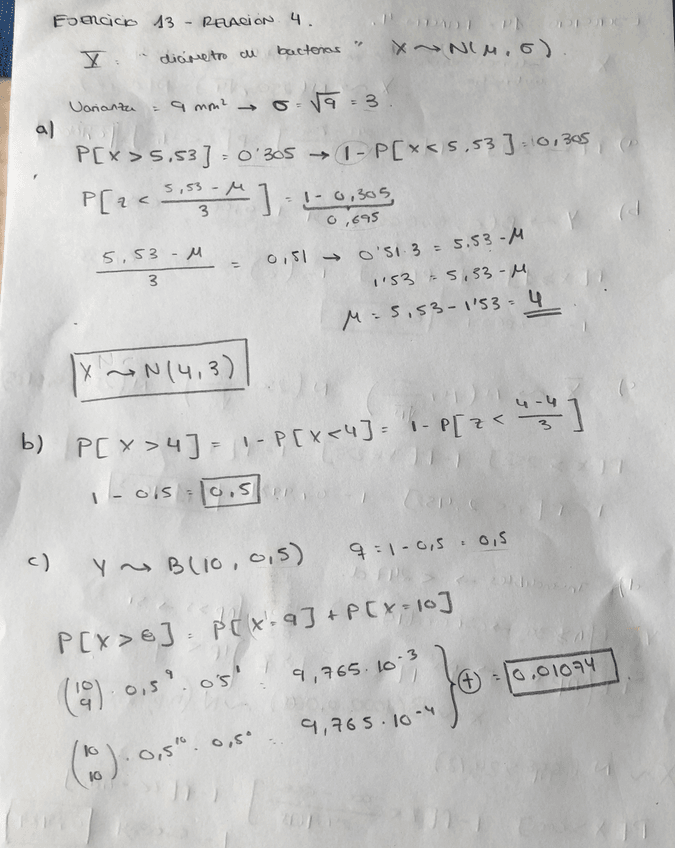 EJERCICIO 13 - RELACIÓN 4.
X: "diámetro de bacterias" X ~ N(μ, σ).
Varianza = 9 mm² → σ = √9 = 3.
a)
P[X > 5,53] = 0'305 → 1 - P[X < 5,53] = 0,305
P[z < (5,53 - μ)/3] = 1 - 0,305
0,695
(5,53 - μ)/3 = 0,51 → 0'51·3 = 5,53 - μ
1'53 = 5,53 - μ
μ = 5,53 - 1'53 = 4
X ~ N(4,3)
b) P[X > 4] = 1 - P[X < 4] = 1 - P[z < (4-4)/3]
1 - 0,5 = 0,5
c) Y ~ B(10, 0,5) q = 1 - 0,5 = 0,5
P[X > 8] = P[X = 9] + P[X = 10]
(10 9) · 0,5⁹ · 0'5¹ = 9,765·10⁻³
⊕ = 0,01074
(10 10) · 0,5¹⁰ · 0,5⁰ = 9,765·10⁻⁴